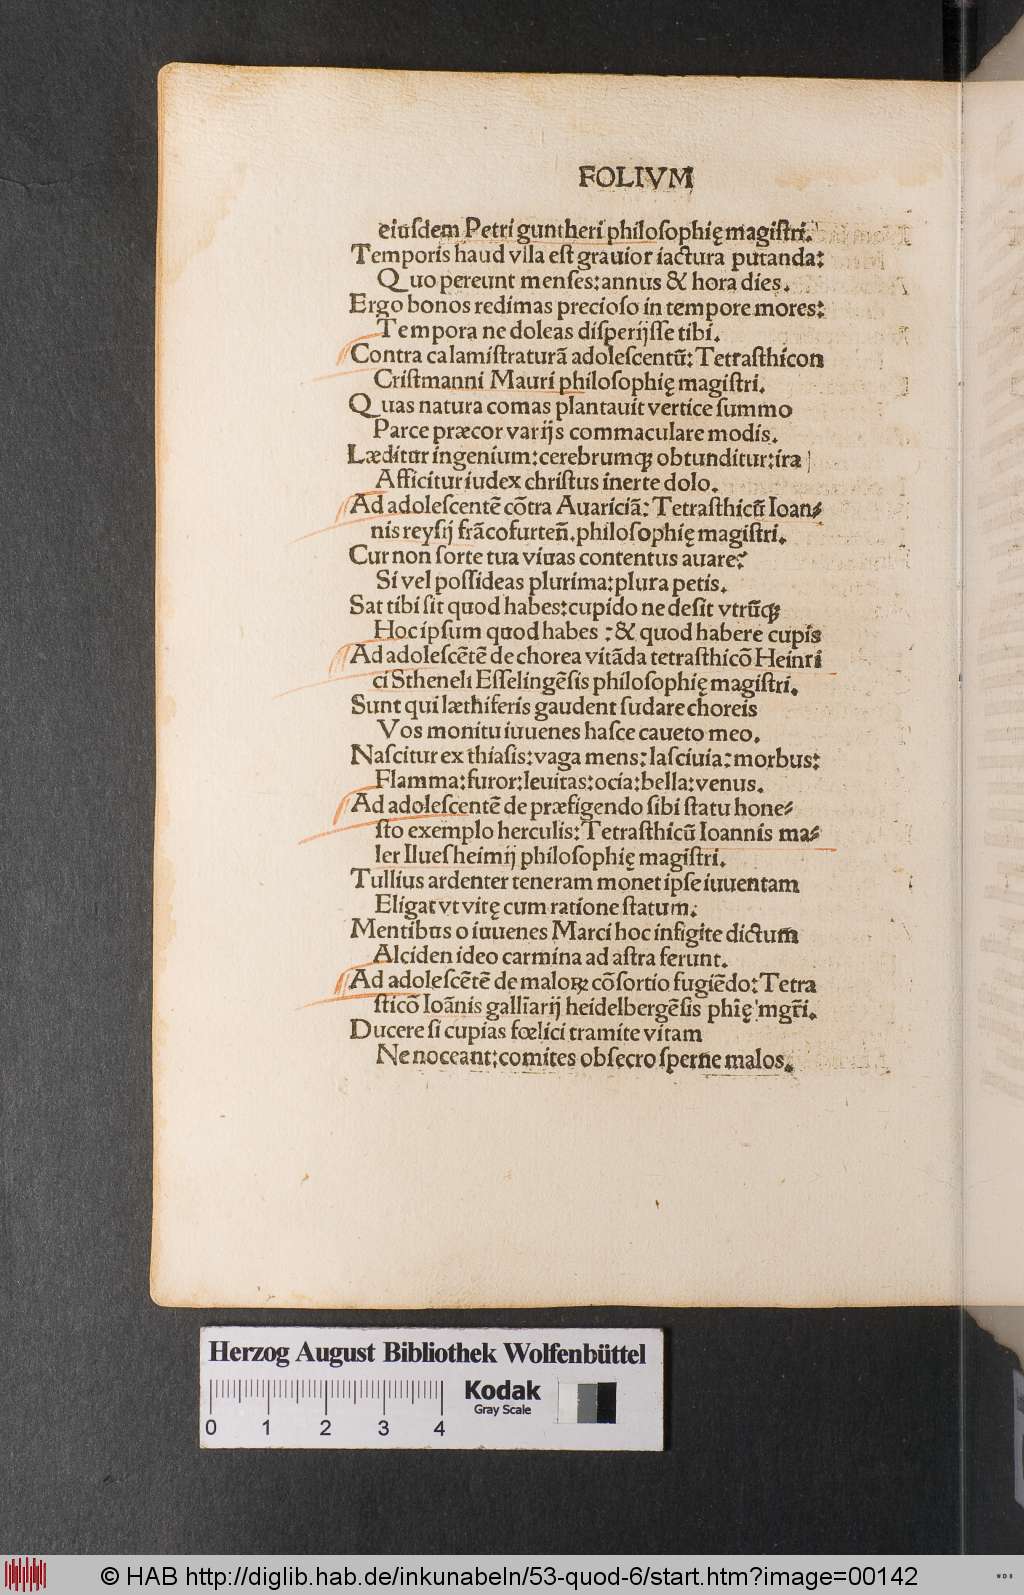 FOLIVM
eiuſdem Petri guntheri philoſophię magiſtri.
Temporis haud vila eſt grauior iactura putanda:
Quo pereunt menſes: annus & hora dies.
Ergo bonos redimas precioſo in tempore mores:
Tempora ne doleas diſperijſſe tibi.
Contra calamiſtraturā adoleſcentū: Tetraſthicon
Criſtmanni Mauri philoſophię magiſtri.
Quas natura comas plantauit vertice ſummo
Parce præcor varijs commaculare modis.
Læditur ingenium: cerebrumqꝫ obtunditur: ira
Afficitur iudex chriſtus inerte dolo.
Ad adoleſcentē cōtra Auariciā: Tetraſthicū Ioan⸗
nis reyſij frācofurteñ. philoſophię magiſtri.
Cur non ſorte tua viuas contentus auare?
Si vel poſſideas plurima: plura petis.
Sat tibi ſit quod habes: cupido ne deſit vtrūqꝫ
Hoc ipſum quod habes : & quod habere cupis
Ad adoleſcētē de chorea vitāda tetraſthicō Heinri
ci Stheneli Eſſelingēſis philoſophię magiſtri.
Sunt qui læthiferis gaudent ſudare choreis
Vos monitu iuuenes haſce caueto meo.
Naſcitur ex thiaſis: vaga mens: laſciuia: morbus:
Flamma: furor: leuitas: ocia: bella: venus.
Ad adoleſcentē de præfigendo ſibi ſtatu hone⸗
ſto exemplo herculis: Tetraſthicū Ioannis ma⸗
ler Ilueſheimij philoſophię magiſtri.
Tullius ardenter teneram monet ipſe iuuentam
Eligat vt vitę cum ratione ſtatum.
Mentibus o iuuenes Marci hoc infigite dictum
Alciden ideo carmina ad aſtra ferunt.
Ad adoleſcētē de maloꝝ cōſortio fugiēdo: Tetra
ſticō Ioānis galliarij heidelbergēſis phię mgr̄i.
Ducere ſi cupias fœlici tramite vitam
Ne noceant: comites obſecro ſperne malos.
Herzog August Bibliothek Wolfenbüttel
Kodak
Gray Scale
0 1 2 3 4
© HAB http://diglib.hab.de/inkunabeln/53-quod-6/start.htm?image=00142